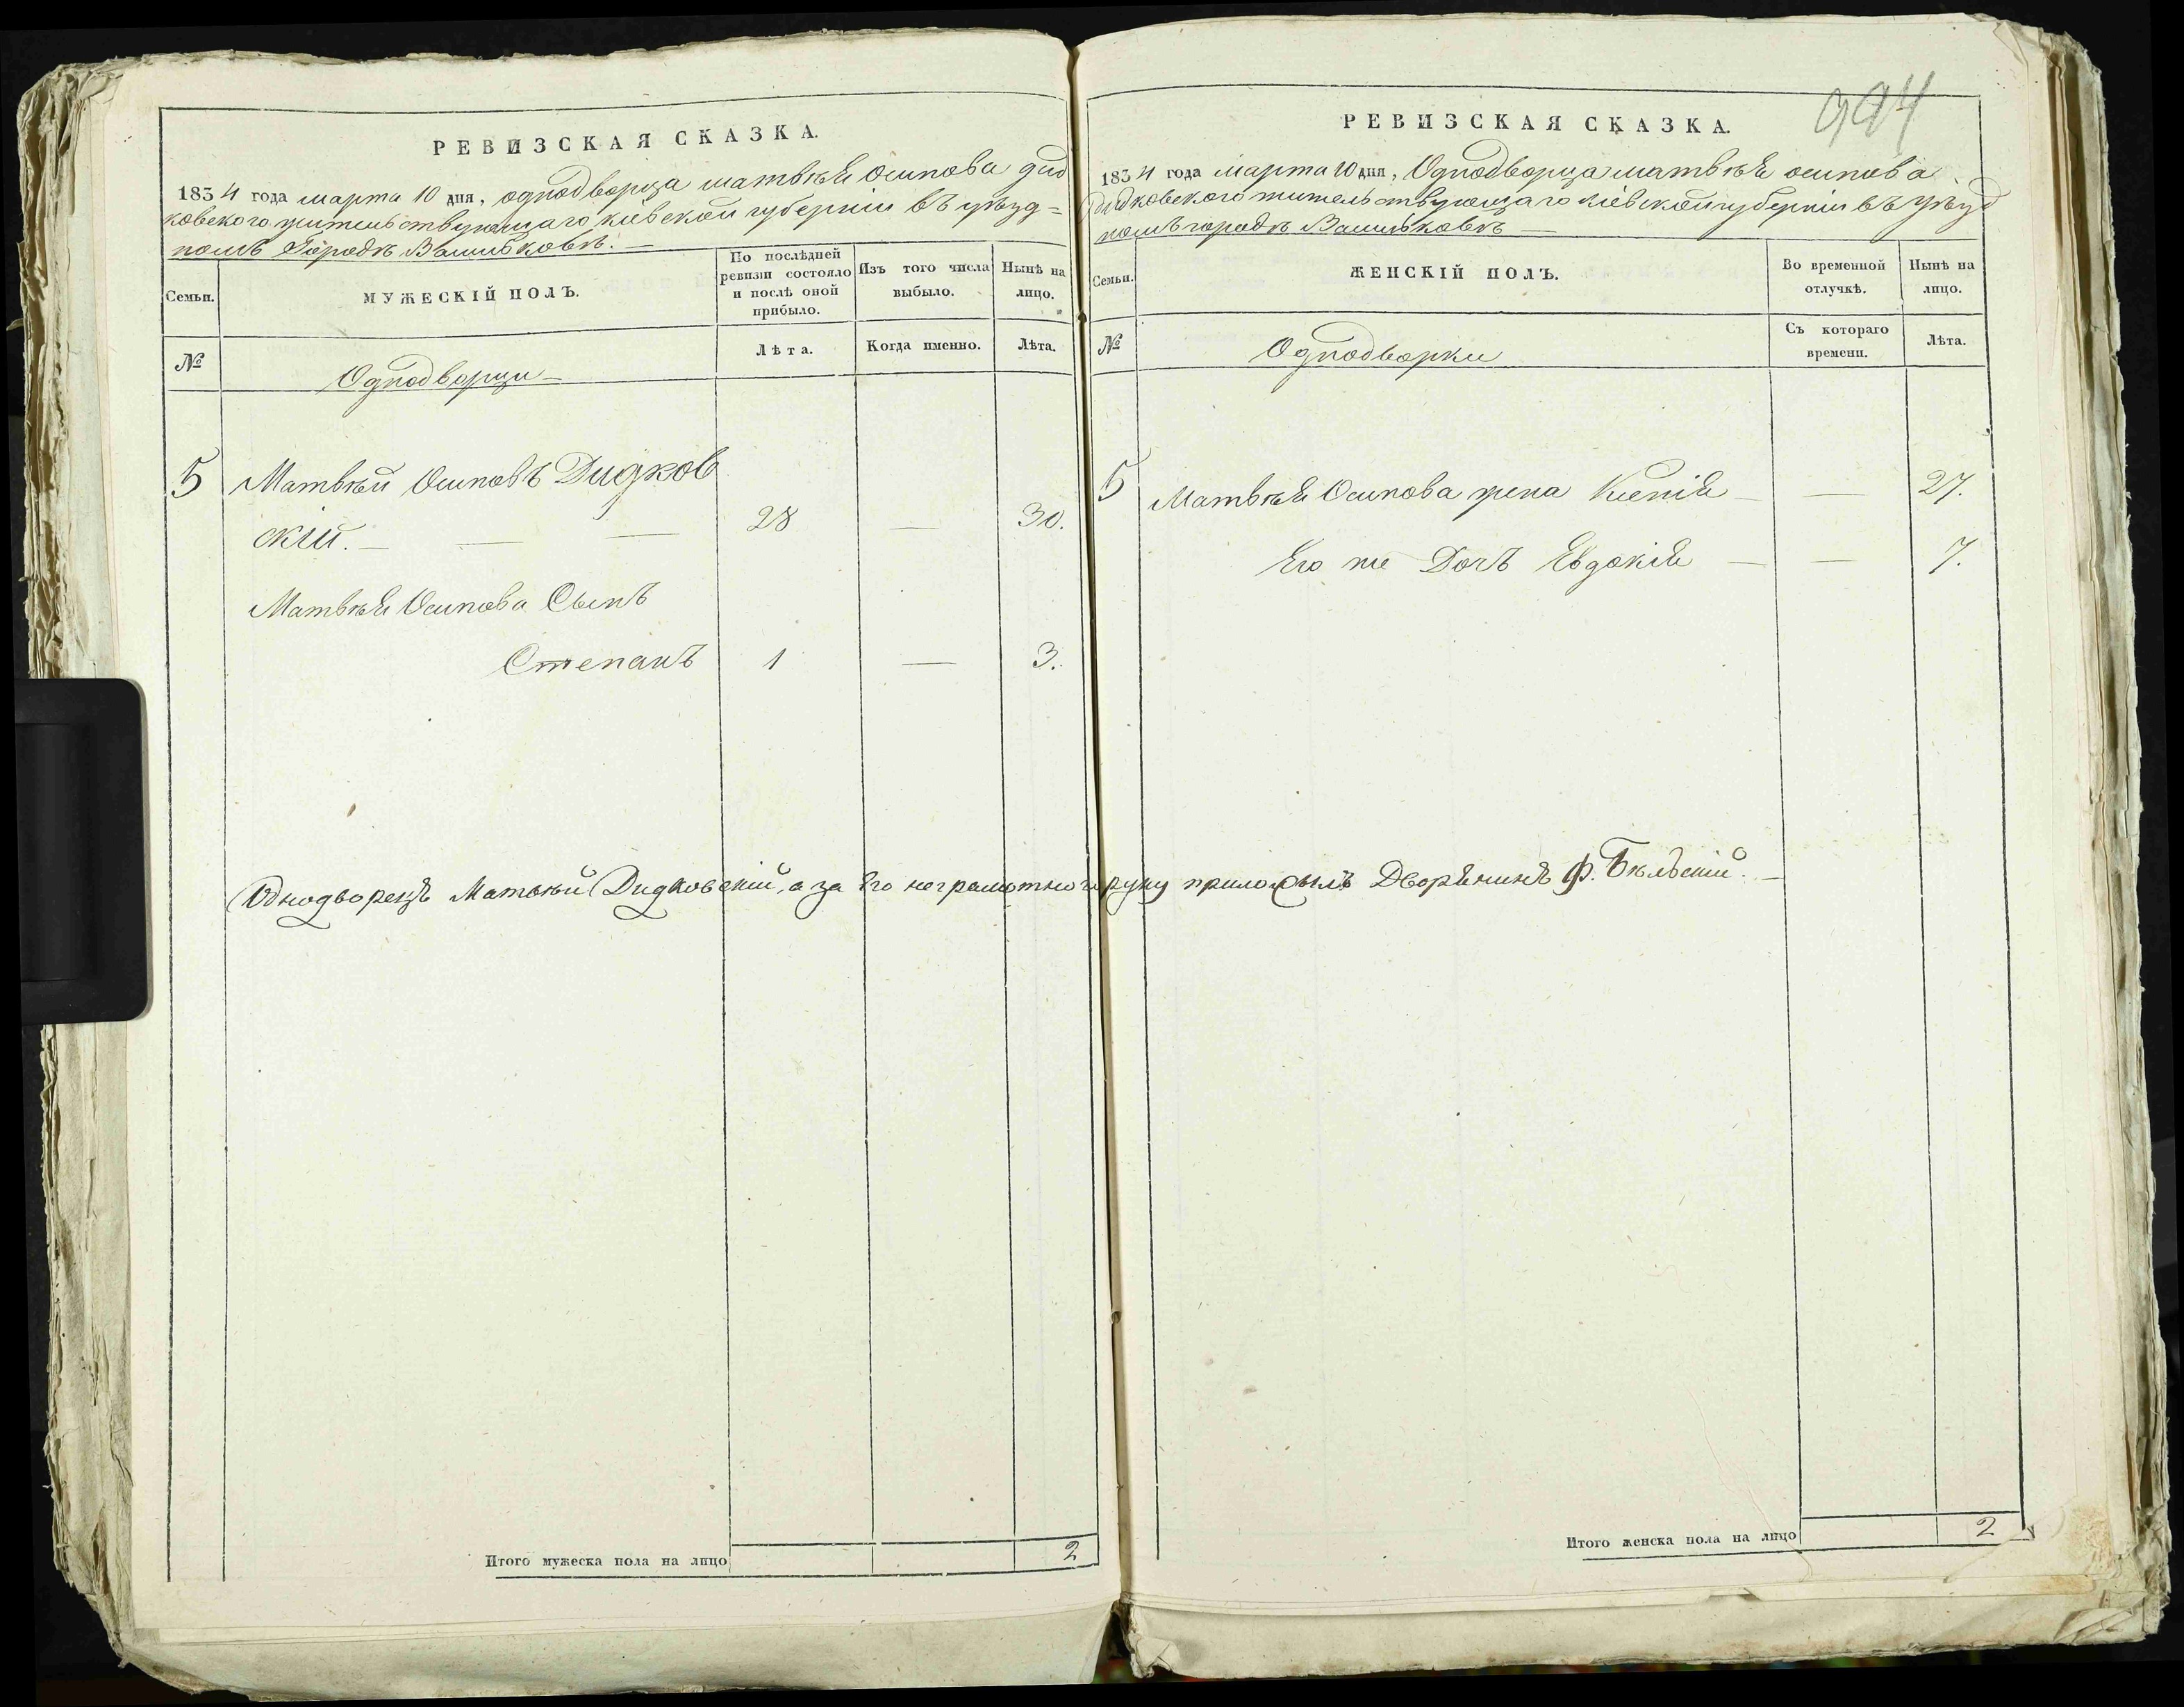 РЕВИЗСКАЯ СКАЗКА.
1834 года марта 10 дня, однодворца матвѣя осипова дид
ковского жительствующаго кіевской губерніи въ уѣзд=
номъ Городѣ Васильковѣ.
Семьи.
МУЖЕСКІЙ ПОЛЪ.
По послѣдней
ревизіи состояло
и послѣ оной
прибыло.
Изъ того числа
выбыло.
Нынѣ на
лицо.
№
Однодворци
Лѣта.
Когда именно.
Лѣта.
5 Матвѣй Осиповъ Дидков
скій. 28 — 30.
Матвѣя Осипова Сынъ
Степанъ 1 — 3.
Итого мужеска пола на лицо 2
994
РЕВИЗСКАЯ СКАЗКА.
1834 года марта 10 дня, Однодворца матвѣя осипова
Дидковского жительствующаго кіевской губерніи въ уѣзд
номъ городѣ Васильковѣ
Семьи.
ЖЕНСКІЙ ПОЛЪ.
Во временной
отлучкѣ.
Нынѣ на
лицо.
№
Однодворки
Съ котораго
времени.
Лѣта.
5 Матвѣя Осипова жена Ксенія — 27.
Его же Дочъ Евдокія — 7.
Однодворецъ Матвѣй Дидковскій, а за Его неграмотного руку приложылъ Дворянинъ Ф. Бѣлѣскій.
Итого женска пола на лицо 2